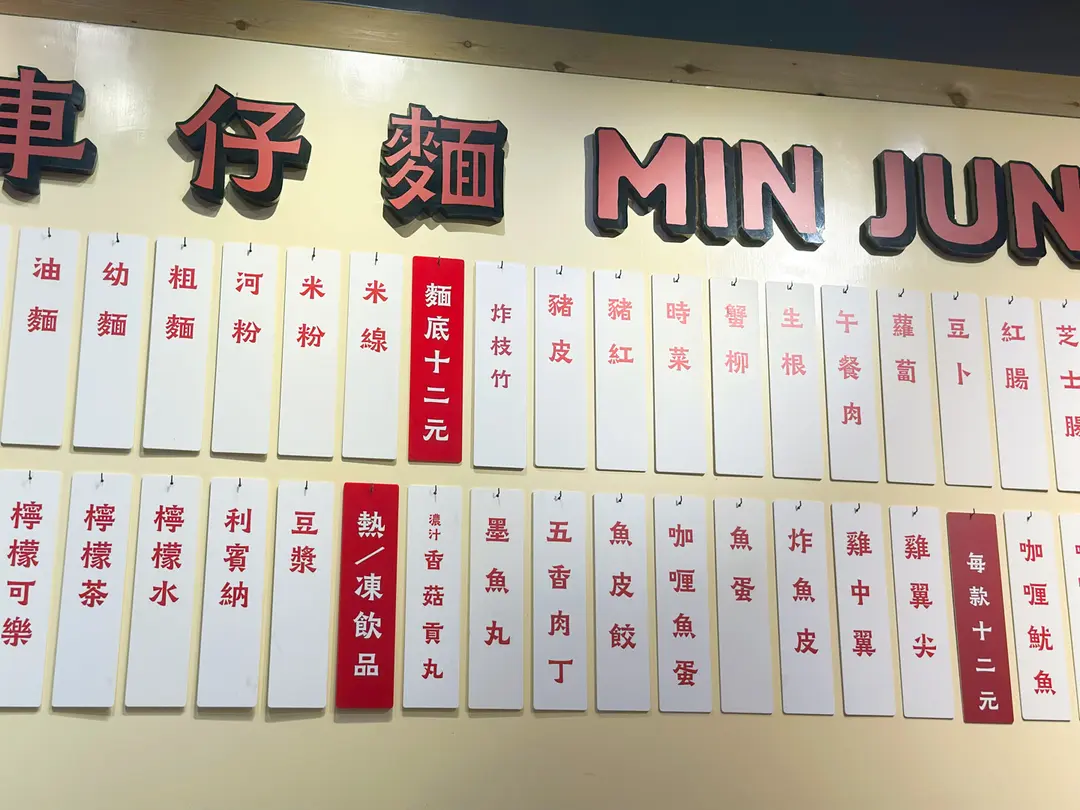 車仔麵 MIN JUN
油麵
幼麵
粗麵
河粉
米粉
米線
麵底十二元
炸枝竹
豬皮
豬紅
時菜
蟹柳
生根
午餐肉
蘿蔔
豆卜
紅腸
芝士腸
檸檬可樂
檸檬茶
檸檬水
利賓納
豆漿
熱/凍飲品
濃汁香菇貢丸
墨魚丸
五香肉丁
魚皮餃
咖喱魚蛋
魚蛋
炸魚皮
雞中翼
雞翼尖
每款十二元
咖喱魷魚